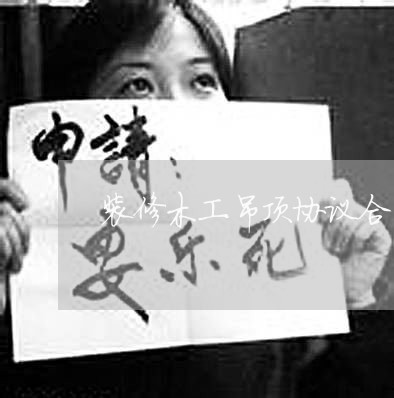 申請：
装修木工吊顶协议合
安乐死